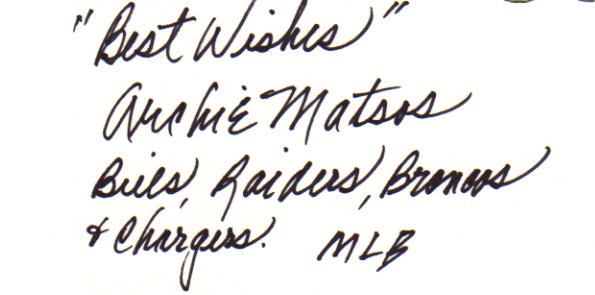 "Best Wishes"
Archie Matsos
Bills, Raiders, Broncos
& Chargers. MLB